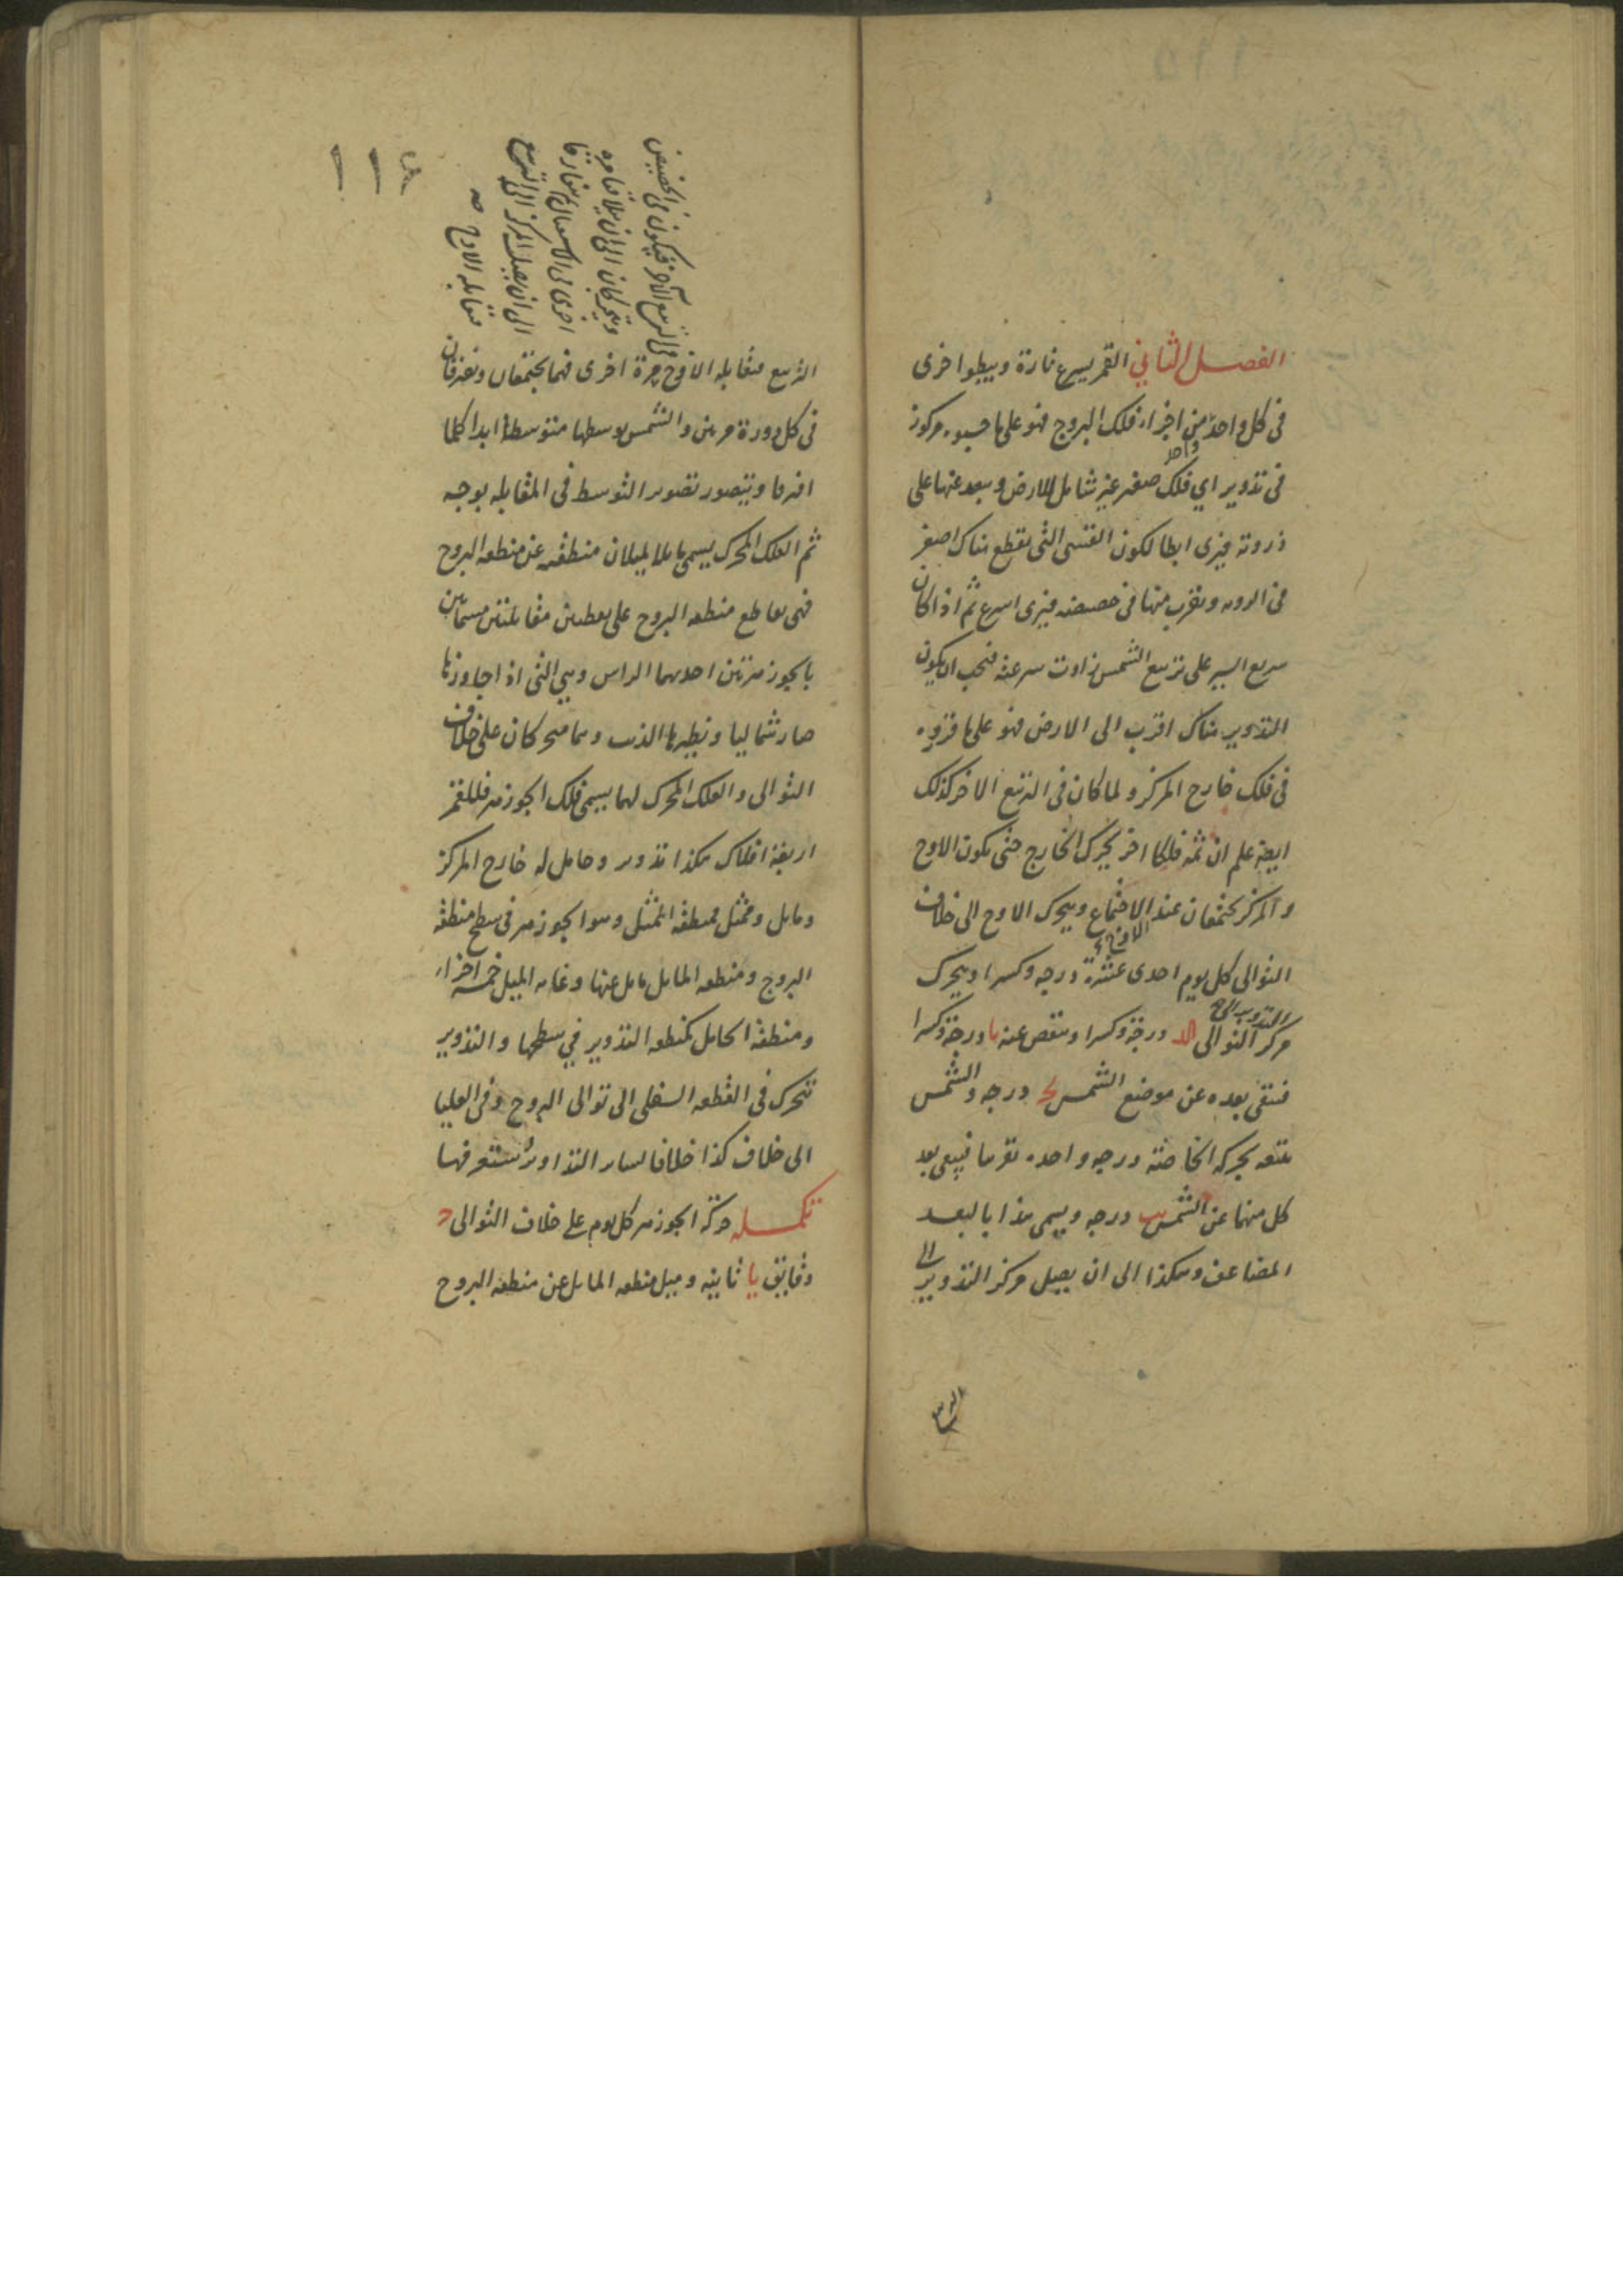 الفصل الثاني القمر يسرع تارة ويبطو اخرى
في كل واحد من اجزاء فلك البروج فهو على ما حسبوه مركوز
واحد
في تدوير اي فلك صغير غير شامل للارض وببعد عنها على
ذروته فيرى ابطا لكون القسي التي يقطع هناك اصغر
في الرويه ويقرب منها في حضيضه فيرى اسرع ثم اذا كان
سريع السير على تربيع الشمس زادت سرعته فيجب ان يكون
التدوير هناك اقرب الى الارض فهو على ما قرروه
في فلك خارج المركز ولما كان في التربيع الاخر كذلك
ايضا علم ان ثمه فلكا اخر يحرك الخارج حتى يكون الاوج
والمركز يجتمعان عند الاجتماع ويتحرك الاوج الى خلاف
الاوج
التوالى كل يوم احدى عشرة درجه وكسرا ويتحرك
التدوير الى
مركز التوالى كد درجة وكسرا وينقص عنه يا درجة وكسرا
فيبقى بعده عن موضع الشمس يج درجه والشمس
تتبعه بحركه الخاصة درجه واحده تقريبا فيبقى بعد
كل منهما عن الشمس يب درجه ويسمى هذا بالبعد
المضاعف وهكذا الى ان يصل مركز التدوير الى
الربيع
١١٨
في التربيع الاخر فيكون في الحضيض
ويتحركان الى ان يتلاقيا مره
اخرى في الاستقبال ثم يتفارقا
الى ان يصل المركز الى التربيع
مقابله الاوج صح
التربيع مقابله الاوج مرة اخرى فهما يجتمعان ويفترقان
في كل دورة مرتين والشمس بوسطها متوسطة ابدا كلما
افترقا ويتصور تصوير التوسط في المقابله بوجه
ثم الفلك المحرك يسمى مايلا لميلان منطقته عن منطقه البروج
فهى تقاطع منطقه البروج على نقطتين متقابلتين مسماتين
بالجوزهرين احديهما الراس وهي التي اذا جاوزها
صار شماليا ونظيرها الذنب وهما متحركان على خلاف
التوالى والفلك المحرك لهما يسمى فلك الجوزهر فللقمر
اربعة افلاك هكذا تدوير وحامل له خارج المركز
ومايل وممثل فمنطقه الممثل وهو الجوزهر في سطح منطقة
البروج ومنطقه المايل مايل عنها وغايه الميل خمسه اجزاء
ومنطقة الحامل كمنطقه التدوير في سطحها والتدوير
تتحرك في القطعه السفلى الى توالى البروج وفي العليا
الى خلاف كذا خلافا لساير التداوير ستعرفها
تكمله حركة الجوزهر كل يوم على خلاف التوالى ج
دقايق يا ثانيه وميل منطقه المايل عن منطقه البروج